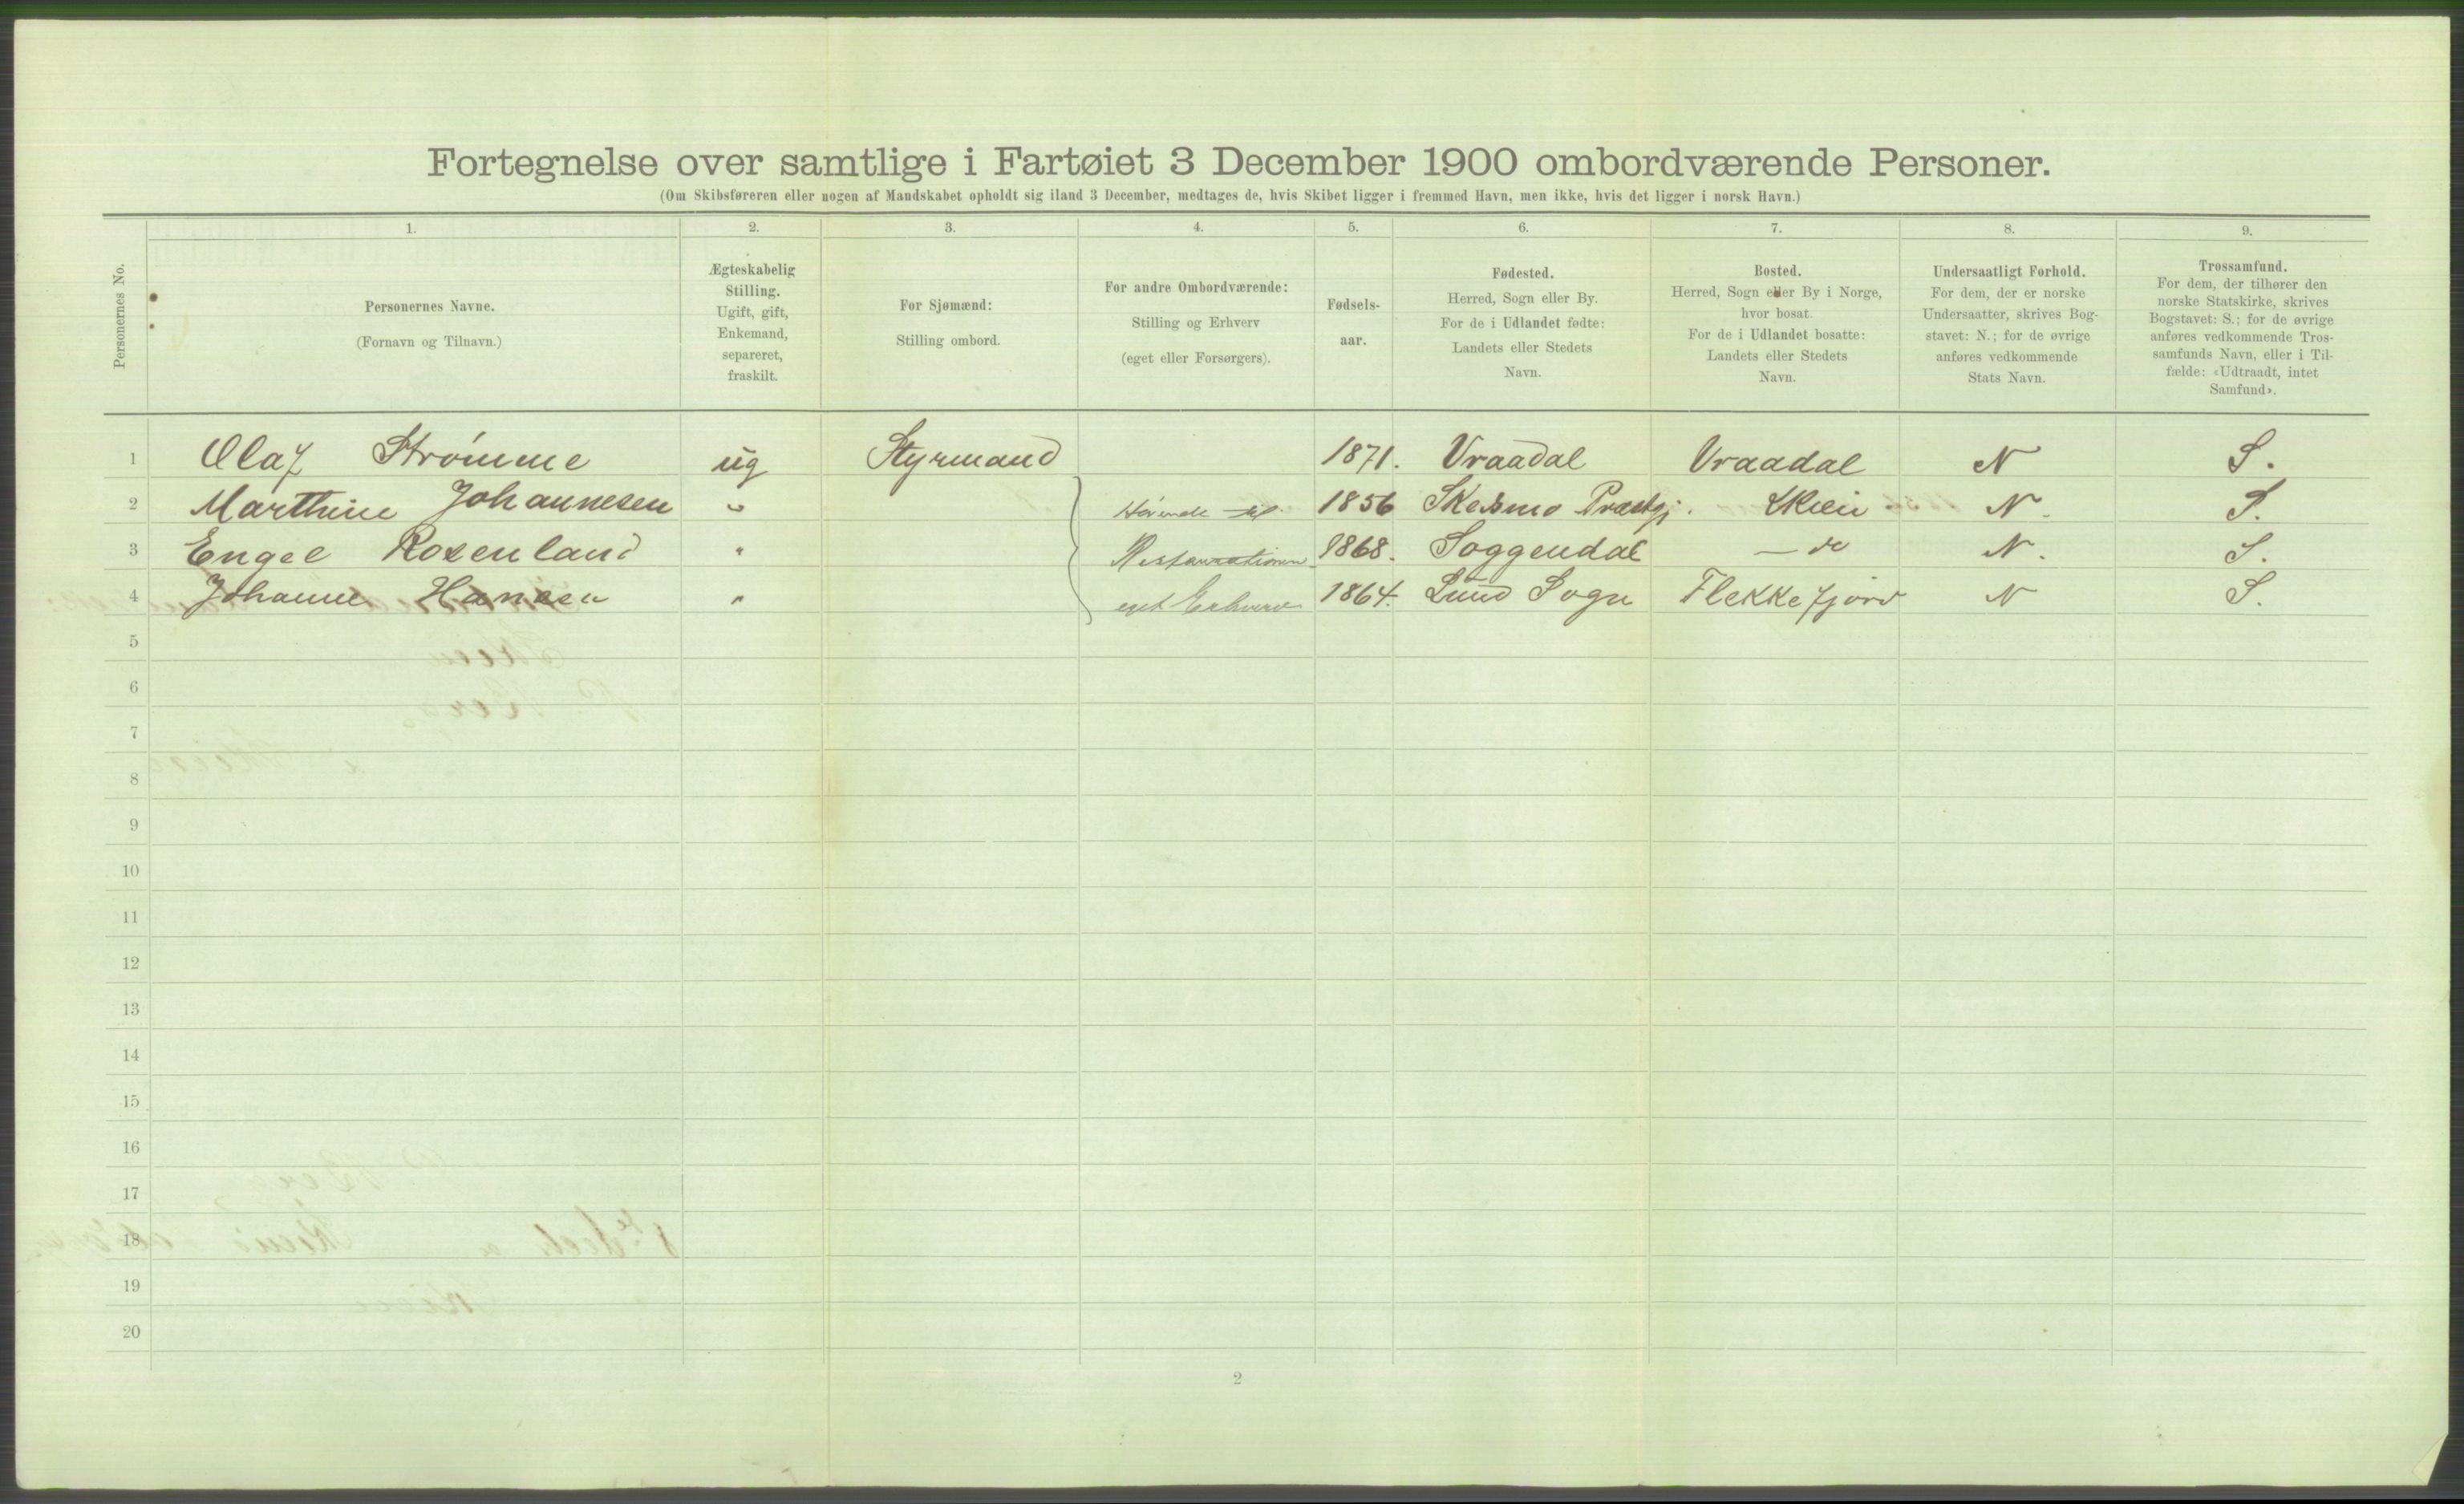 Fortegnelse over samtlige i Fartøiet 3 December 1900 ombordværende Personer.
(Om Skibsføreren eller nogen af Mandskabet opholdt sig iland 3 December, medtages de, hvis Skibet ligger i fremmed Havn, men ikke, hvis det ligger i norsk Havn.)
Personernes No.
1. 2. 3. 4. 5. 6. 7. 8. 9.
Personernes Navne.
(Fornavn og Tilnavn.)
Ægteskabelig
Stilling.
Ugift, gift,
Enkemand,
separeret,
fraskilt.
For Sjømænd:
Stilling ombord.
For andre Ombordværende:
Stilling og Erhverv
(eget eller Forsørgers).
Fødsels-
aar.
Fødested.
Herred, Sogn eller By.
For de i Udlandet fødte:
Landets eller Stedets
Navn.
Bosted.
Herred, Sogn eller By i Norge,
hvor bosat.
For de i Udlandet bosatte:
Landets eller Stedets
Navn.
Undersaatligt Forhold.
For dem, der er norske
Undersaatter, skrives Bog-
stavet: N.; for de øvrige
anføres vedkommende
Stats Navn.
Trossamfund.
For dem, der tilhører den
norske Statskirke, skrives
Bogstavet: S.; for de øvrige
anføres vedkommende Tros-
samfunds Navn, eller i Til-
fælde: «Udtraadt, intet
Samfund».
1 Olaf Strømme ug Styrmand 1871. Vraadal Vraadal N S.
2 Marthine Johannesen " Hørende til 1856 Præstgj. Skien N. S.
3 Engel Rosenland " Restaurationen 1868. Soggendal — do N. S.
4 Johanne Hansen " eget Erhverv 1864. Lund Sogn Flekkefjord N S.
5
6
7
8
9
10
11
12
13
14
15
16
17
18
19
20
2